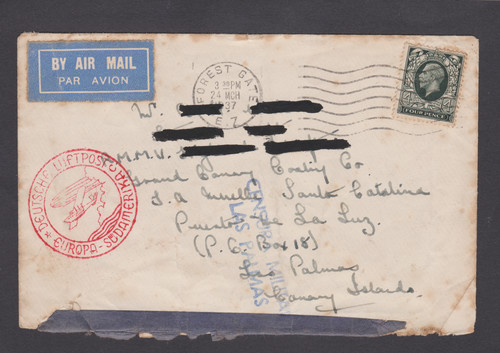 BY AIR MAIL
PAR AVION
FOREST GATE
3 30PM
24 MCH
37
E.7
FOUR PENCE
DEUTSCHE LUFTPOST
EUROPA-SÜDAMERIKA
M.M.V.
Grand Canary Coaling Co.
Santa Catalina
Puerto De La Luz
(P.O. Box 18)
Las Palmas
Canary Islands.
CENSURA MILITAR
LAS PALMAS